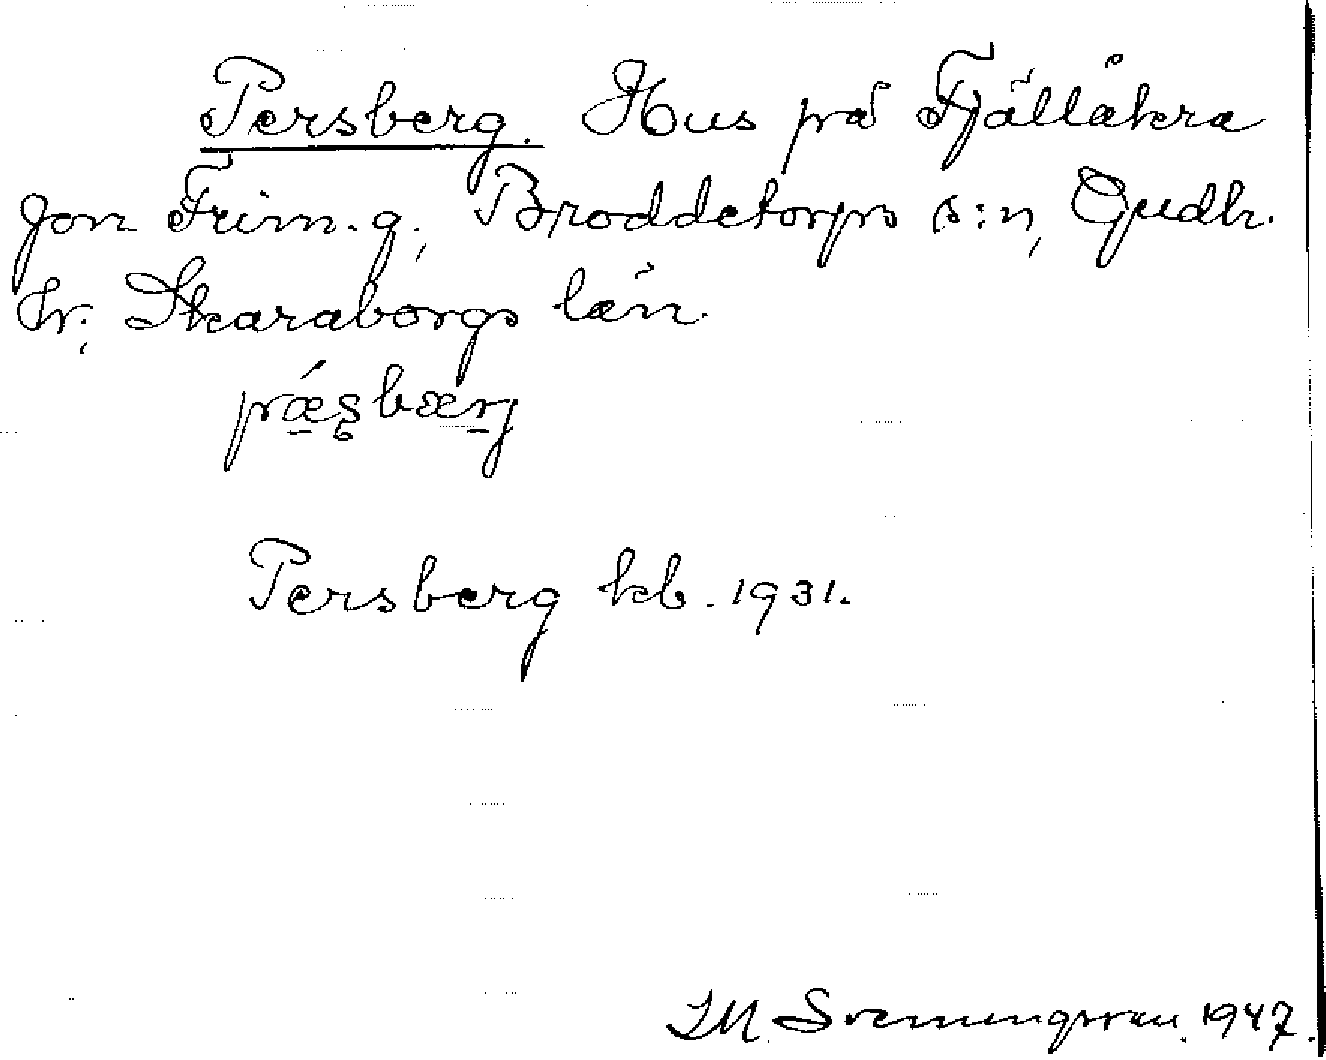 Persberg. Hus på Fjällåkra
Jon Trim.g., Broddetorps s:n, Gudh.
hr; Skaraborgs län.
pæʂbærj
Persberg kb. 1931.
J M Svenningsson. 1947.